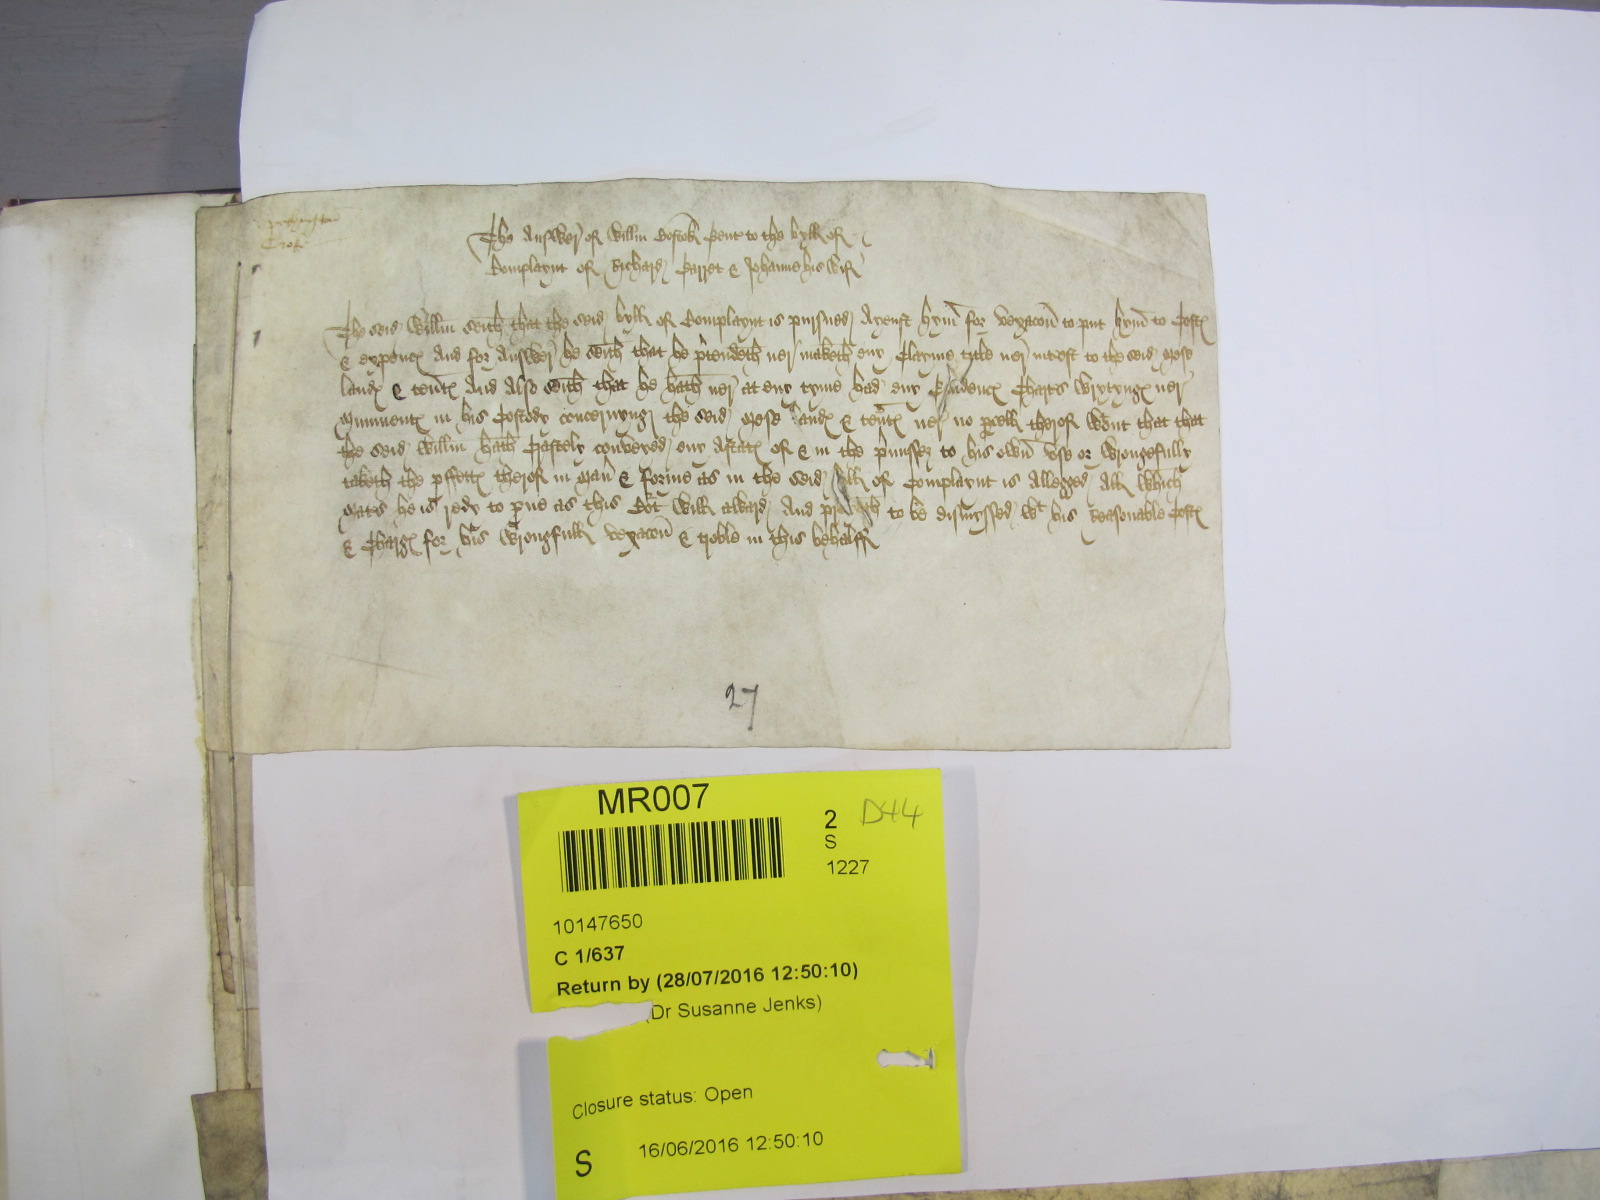 The Answer of Willm Bostok sent to the byll of
Complaynt of Richard Parret & Johanne his wif
The seid Willm seith that the seid byll of Complaynt is pursued Ayenst hym for vexacon to put hym to Cost
& expences And for Answer he seith that he ptendeth ner maketh eny Clayme title ner intrest to the seid mese
landes & tentes And Also seith that he hath ner at eny tyme had eny Evidences Chartes Wrytynges ner
munimentes in his Custody concernyng the seid mese landes & tentes ner no pcell therof Wtout that that
the seid Willm hath Craftely conveyed eny Astates of & in the pmisses to his own vse or Wrongefully
taketh the pfettes therof in man & forme as in the seid byll of Complaynt is Allegged All Which
maters he is redy to pve as this Cort Will Award And prayeth to be dismyssed Wt his Reasonable Costes
& Charges for his Wrongfull vexacon & troble in this behalff
27
MR007
2 D44
S
1227
10147650
C 1/637
Return by (28/07/2016 12:50:10)
(Dr Susanne Jenks)
Closure status: Open
S 16/06/2016 12:50:10